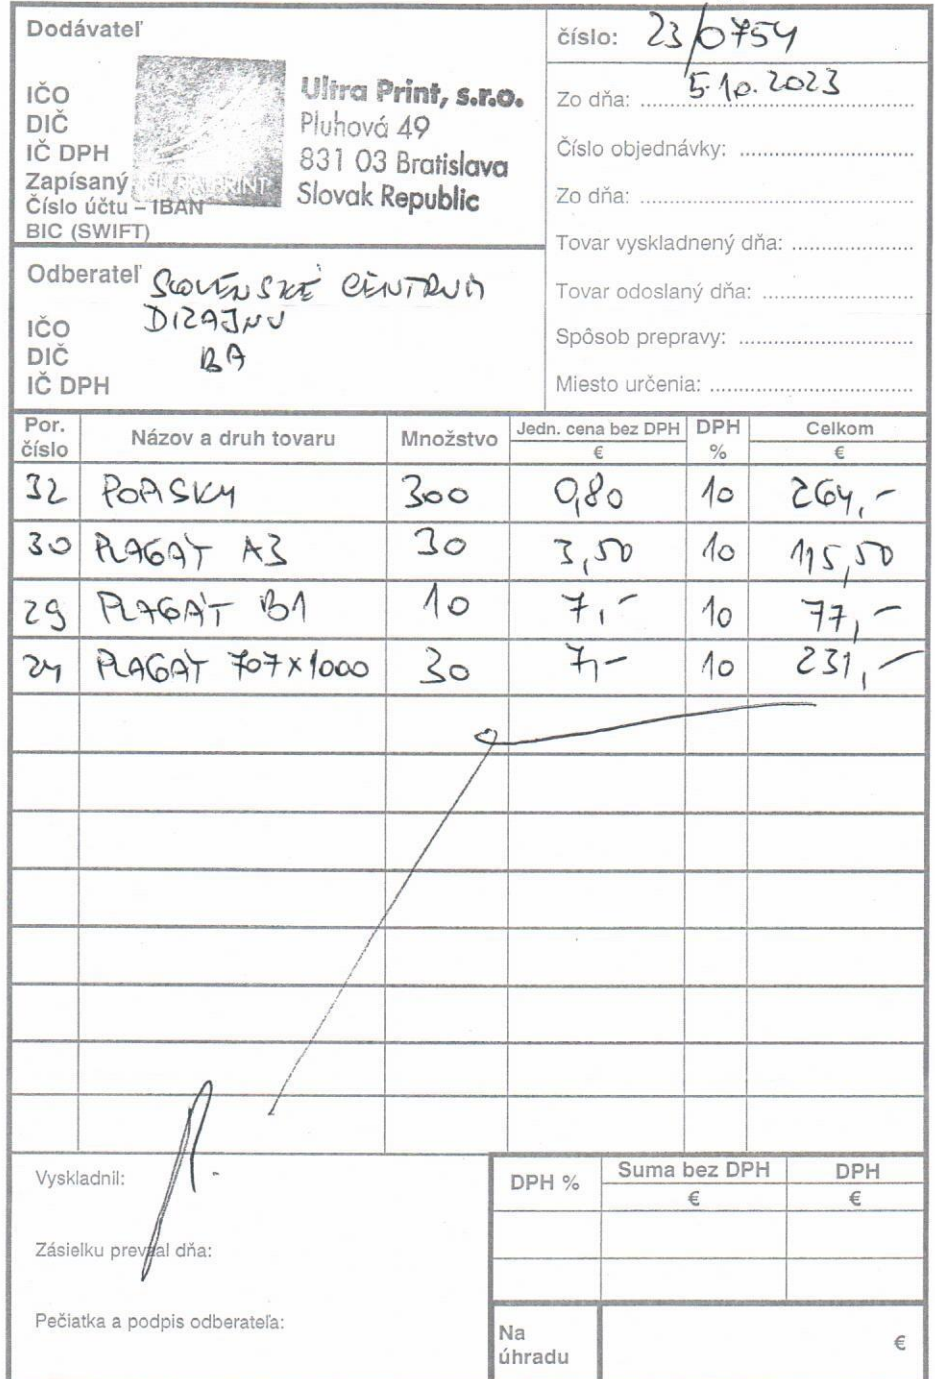 Dodávateľ
IČO
DIČ
IČ DPH
Zapísaný
Číslo účtu – IBAN
BIC (SWIFT)
Ultra Print, s.r.o.
Pluhová 49
831 03 Bratislava
Slovak Republic
číslo: 23/0754
Zo dňa: 5.10.2023
Číslo objednávky:
Zo dňa:
Tovar vyskladnený dňa:
Tovar odoslaný dňa:
Spôsob prepravy:
Miesto určenia:
Odberateľ SLOVENSKÉ CENTRUM
DIZAJNU
BA
IČO
DIČ
IČ DPH
Por. číslo Názov a druh tovaru Množstvo Jedn. cena bez DPH € DPH % Celkom €
32 POPISKY 300 0,80 10 264,-
30 PLAGÁT A3 30 3,50 10 115,50
29 PLAGÁT B1 10 7,- 10 77,-
24 PLAGÁT 707x1000 30 7,- 10 231,-
Vyskladnil:
Zásielku prevzal dňa:
Pečiatka a podpis odberateľa:
DPH % Suma bez DPH € DPH €
Na úhradu €